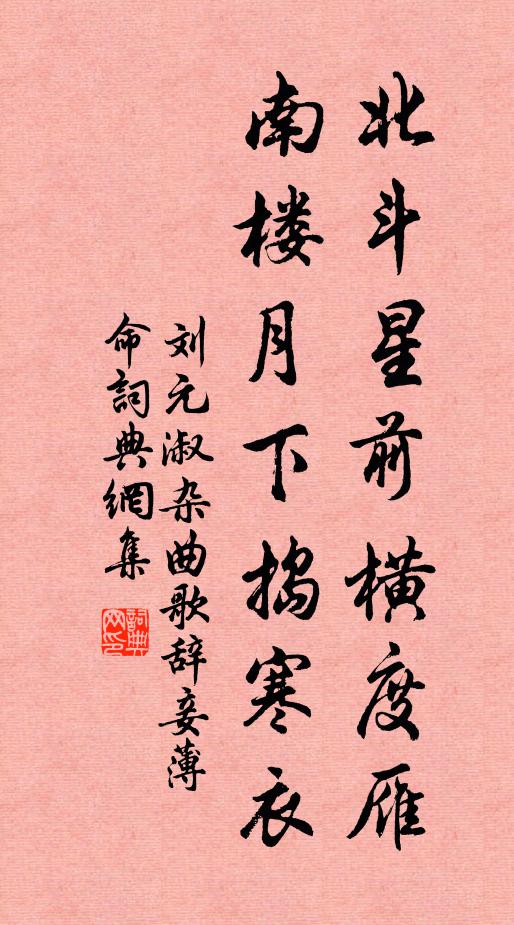 北斗星前横度雁
南楼月下捣寒衣
刘元淑杂曲歌辞妾薄
命詞典網集
詞典
网印